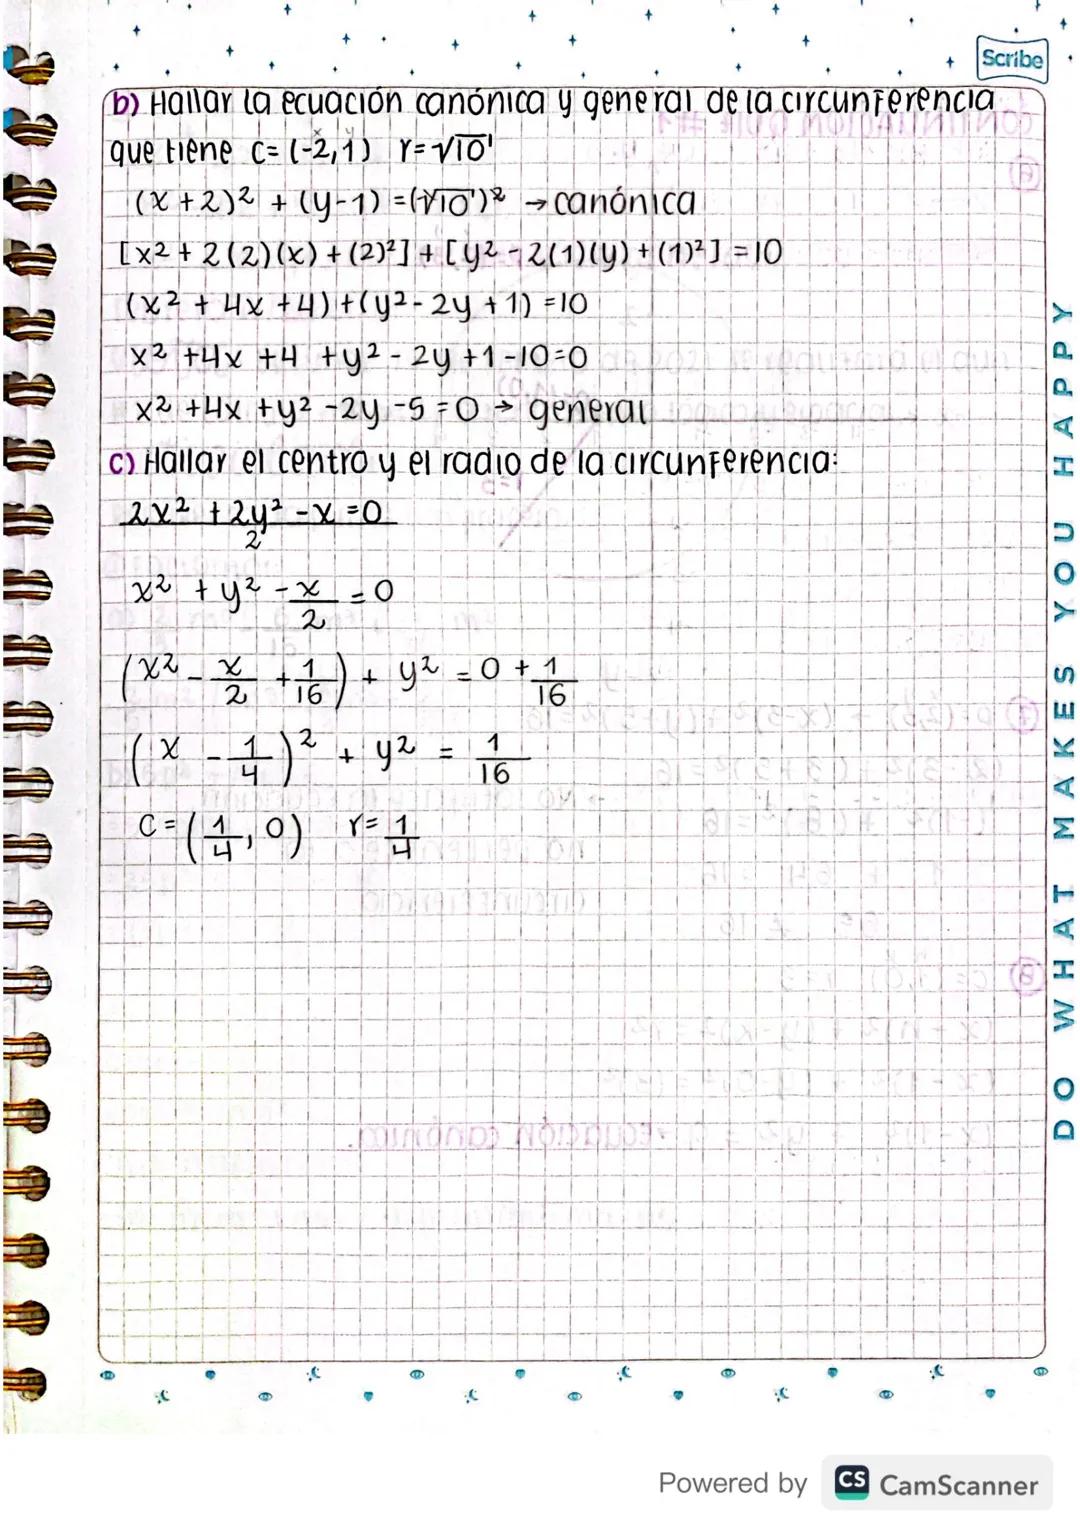 Scribe
b) Hallar la ecuación canónica y general de la circunferencia
que tiene c= (-2,1) r=√10
(x +2)² + (y-1) =(√10)² → canónica
[x² + 2(2)(x) + (2)²] + [y² - 2(1)(y) + (1)²] = 10
(x² + 4x +4) +(y² - 2y +1) =10
x² +4x +4 +y² - 2y +1 -10=0
x² +4x +y² -2y -5 =0 → general
c) Hallar el centro y el radio de la circunferencia:
2x² +2y² -x =0
2
x² + y² - x/2 = 0
(x² - x/2 + 1/16) + y² = 0 + 1/16
(x - 1/4)² + y² = 1/16
C = (1/4, 0) r= 1/4
DO WHAT MAKES YOU HAPPY
Powered by CS CamScanner